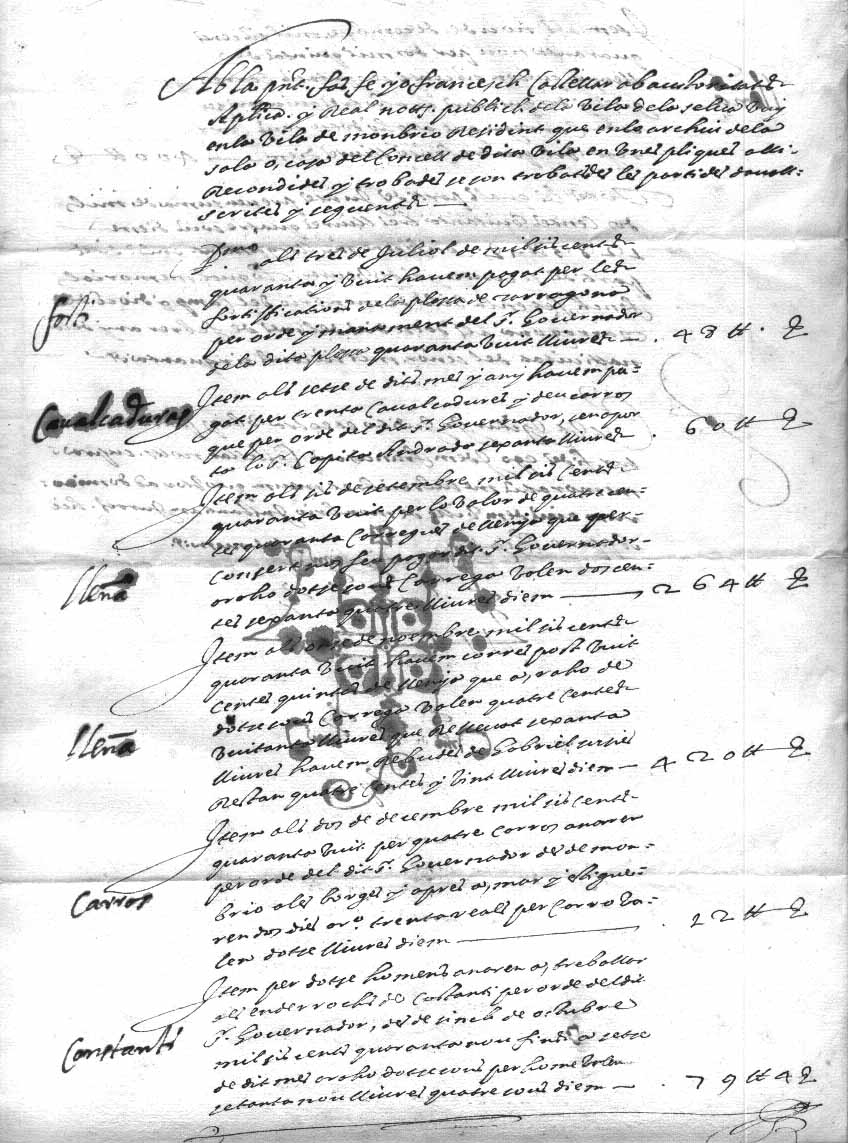 Ab la pnt. fas fe yo francesch Castellar ab authoritat
Aplica. y Real nott. publich dela Vila dela selva Vuy
en la Vila de monbrio Residint que en lo archiu dela
sala o, casa del Concell de dita Vila en Unes pliques alli
Recondides y trobades se son trobades les partides davall
scrites y seguents
Pmo als tres de Juliol de mil sis cents
quaranta y Vuit havem pagat per les
fortifications dela plassa de tarragona
per orde y manament del Sr. Governador
dela dita plassa quaranta Vuit lliures — . 48 ℔ .
forti
Item als setse de dits mes y any havem pa-
gat per trenta Cavalcadures y deu carros
que per orde del dit Sr. Governador, sen apor
ta lo Sr. Capita Andrada sexanta lliures . 60 ℔
Cavalcaduras
Item als sis de setembre mil sis cents
quaranta Vuit per lo Valor de quatre cen-
tes quaranta Carregues de llenya que per
consertaos feu pagar dit Sr. Governador
a raho dotse sous Carrega Valen dos cen-
tes sexanta quatre lliures diem — 264 ℔
lleña
Item als onse de noembre mil sis cents
quaranta Vuit havem corres post Vuit
centes quintas de llenya que a, raho de
dotse sous Carrega Valen quatre centes
Vuitanta lliures que Rellevat sexanta
lliures havem Rebudes de Gabriel
Restan quatre centes y Vint lliures diem — 420 ℔
lleña
Item als dos de decembre mil sis cents
quaranta Vuit per quatre carros anaren
per orde del dit Sr. Governador des de mon-
brio ales borges y apres a, mar y estigue-
ren dos dies a ro. trenta reals per Carro Va-
len dotse lliures diem — . 12 ℔
Carros
Item per dotse homens anaren a, treballar
als enderrochs de Costanti per orde del dit
Sr. Governador, des de sinch de octubre
mil sis cents quaranta nou fins a setse
de dit mes a raho dotse sous per home Valen
setanta nou lliures quatre sous diem — . 79 ℔ 4
Constanti